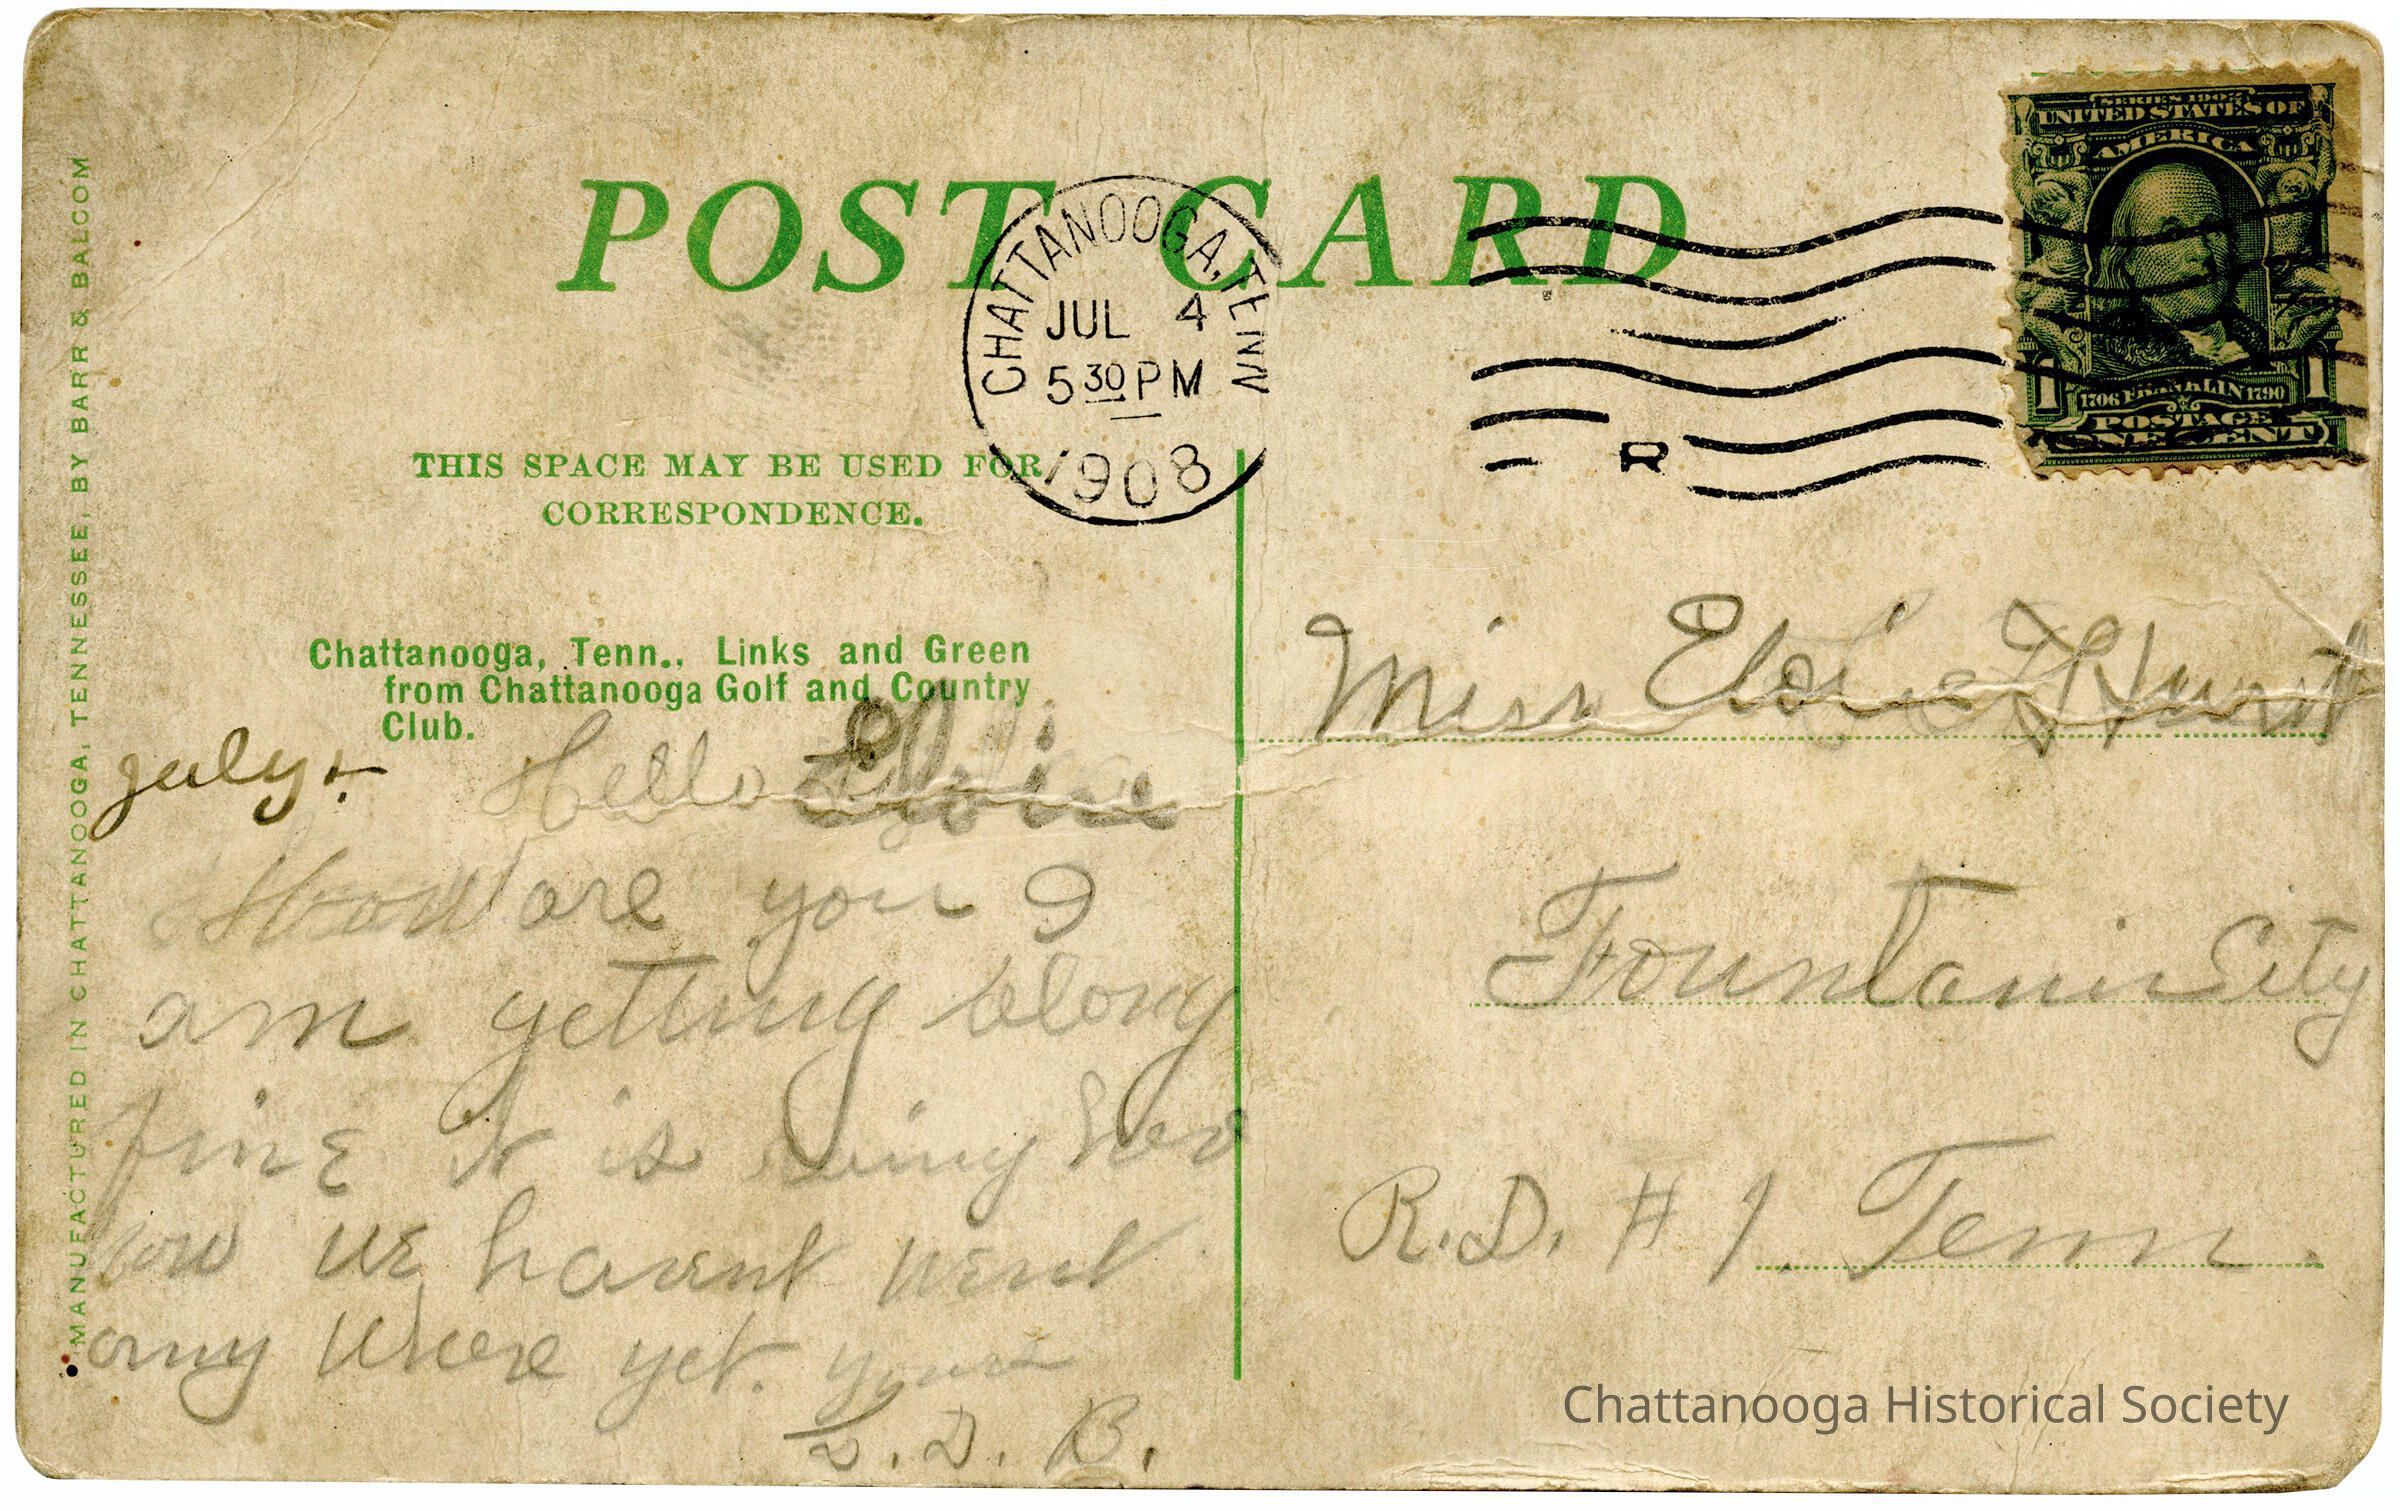 POST CARD
CHATTANOOGA, TENN
JUL 4
5 30 PM
1908
R
SERIES 1902
UNITED STATES OF
AMERICA
1 1
1706 FRANKLIN 1790
POSTAGE
ONE CENT
MANUFACTURED IN CHATTANOOGA, TENNESSEE, BY BARR & BALCOM
THIS SPACE MAY BE USED FOR
CORRESPONDENCE.
Chattanooga, Tenn., Links and Green
from Chattanooga Golf and Country
Club.
july
Hello Eloise
How are you I
am getting along
fine it is
now we havent went
any where yet. yours
D. B.
Miss Eloise Hurst
Fountain City
R.D. # 1. Tenn.
Chattanooga Historical Society